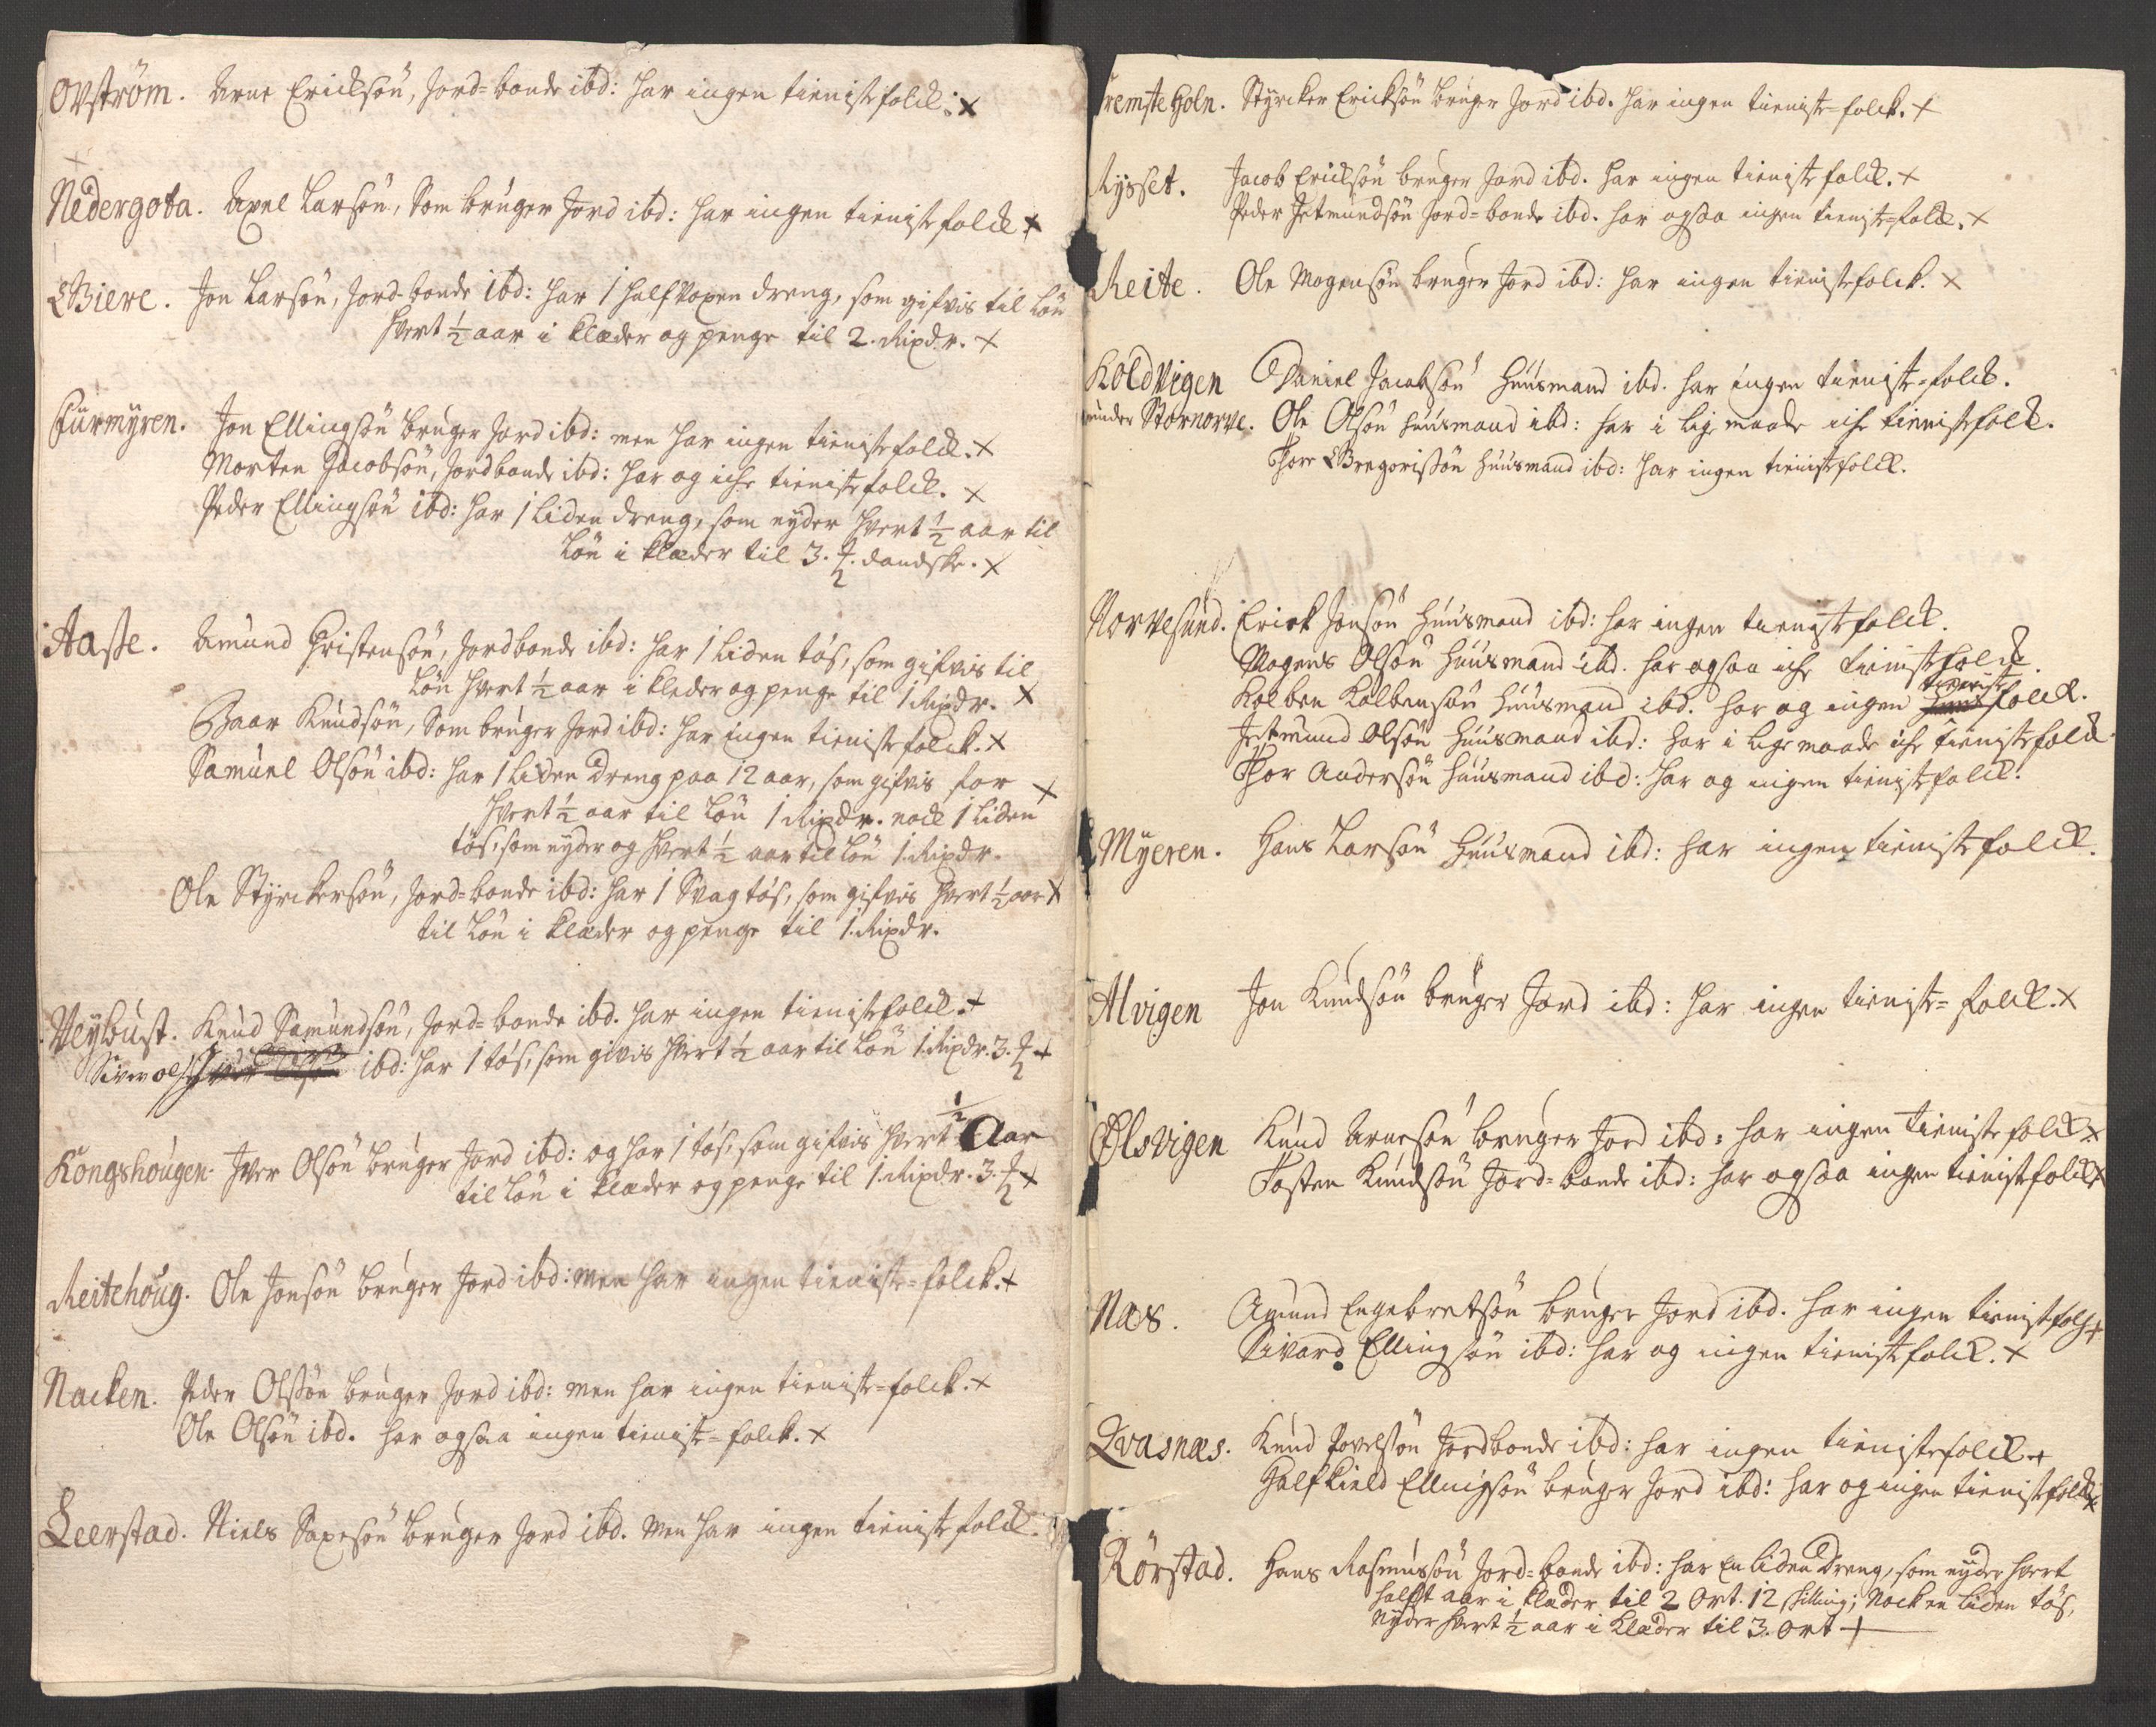 Ovström. Arne Erickson, Jord-bonde ibd: har ingen tienistefolck. x
Nedergota. Axel Larsön, Som brúger Jord ibd: har ingen tienistefolck x
Giere. Jon Larsön, Jord-bonde ibd: har 1 halfvoxen dreng, som gifvis til Lön
hvert ½ aar i klæder og penge til 2. Rixdr. x
Furmÿren. Jon Ellingsön brúger Jord ibd: men har ingen tienistefolck. x
Morten Jacobsön, Jordbonde ibd: har og iche tienistefolck. x
Peder Ellingsön ibd: har 1 liden dreng, som nyder hvert ½ aar til
Lön i klæder til 3. dandske. x
Aasse. Amund Christensön, Jordbonde ibd: har 1 liden tös, som gifvis til
Lön hvert ½ aar i kleder og penge til 1 Rixdr. x
Baar Knúdsön, Som brúger Jord ibd: har ingen tienistefolck. x
Samúel Olsön ibd: har 1 liden dreng paa 12 aar, som gifvis for x
hvert ½ aar til Lön 1 Rixdr. nock 1 liden
tös, som nyder og hvert ½ aar til Lön 1. Rixdr.
Ole Stÿrckersön, Jord-bonde ibd: har 1 Svag tös, som gifvis hvert ½ aar x
til Lön i klæder og penge til 1. Rixdr.
Veÿbúst. Knúd Samúndsön, Jord-bonde ibd. har ingen tienistefolck. x
Siver ols. ibd: har 1 tös, som givis hvert ½ aar til Lön 1. Rixdr. 3. x
Kongshoúgen. Iver Olsön brúger Jord ibd: og har 1 tös, som gifvis hvert ½ Aar
til Lön i klæder og penge til 1. Rixdr. 3. x
Reitehoúg. Ole Jonsön brúger Jord ibd: men har ingen tieniste-folck. x
Nacken. Peder Olssön brúger Jord ibd: men har ingen tieniste-folck. x
Ole Olsön ibd. har ogsaa ingen tieniste-folck. x
Leerstad. Niels Saxesön brúger Jord ibd. men har ingen tienistefolck.
Fremste Holn. Stÿrcker Ericksön brúger Jord ibd. har ingen tieniste-folck. x
Rÿsset. Jacob Ericksön brúger Jord ibd. har ingen tienistefolck. x
Peder Jetmúndsön Jord-bonde ibd. har ogsaa ingen tieniste-folck. x
Reite. Ole Mogensön brúger Jord ibd: har ingen tienistefolck. x
Koldvigen Daniel Jacobsön húúsmand ibd. har ingen tieniste-folck.
under Stornorve. Ole Olsön húúsmand ibd: har i lige maade iche tienistefolck.
Thore Gregorissön húúsmand ibd: har ingen tienistefolck.
Norvesúnd. Erick Jonsön húúsmand ibd: har ingen tienistefolck.
Mogens Olsön húúsmand ibd. har ogsaa iche tienistefolck.
Kolben Kolbensön húúsmand ibd. har og ingen tienistefolck.
Jetmúnd Olsön húúsmand ibd: har i lige maade iche tienistefolck.
Thor Andersön húúsmand ibd: har og ingen tienistefolck.
Mÿeren. Hans Larsön húúsmand ibd: har ingen tienistefolck.
Alvigen Jon Knúdsön brúger Jord ibd: har ingen tieniste-folck. x
Ølsvigen Knúd Arnesön brúger Jord ibd: har ingen tienistefolck x
Tosten Knúdsön Jord-bonde ibd: har ogsaa ingen tienistefolck x
Næs. Amund Engebretsön brúger Jord ibd. har ingen tienistefolch x
Sivard Ellingsön ibd: har og ingen tienistefolck. x
Qvasnæs. Knúd Povelsön Jordbonde ibd: har ingen tienistefolck. x
Halfkield Ellingsön brúger Jord ibd: har og ingen tienistefolck x
Rörstad. Hans Rasmússön Jord-bonde ibd: har En liden Dreng, som nyder hvert
halft aar i klæder til 2 Ort. 12 skilling; Nock en liden tös,
Nyder hvert ½ aar i klæder til 3. ort x